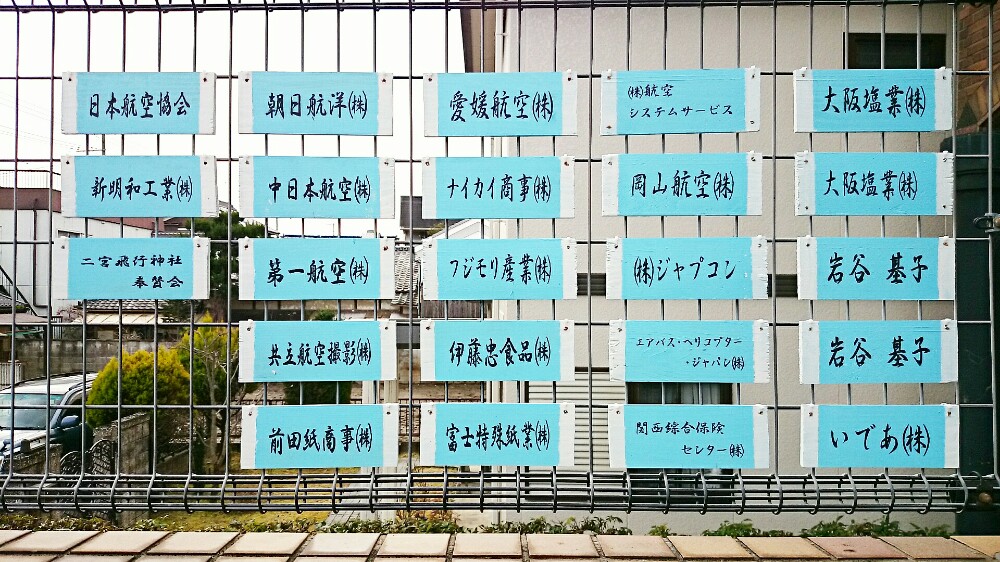 日本航空協会
朝日航洋㈱
愛媛航空㈱
㈱航空
システムサービス
大阪塩業㈱
新明和工業㈱
中日本航空㈱
ナイカイ商事㈱
岡山航空㈱
大阪塩業㈱
二宮飛行神社
奉賛会
第一航空㈱
フジモリ産業㈱
㈱ジャプコン
岩谷 基子
共立航空撮影㈱
伊藤忠食品㈱
エアバス・ヘリコプター
・ジャパン㈱
岩谷 基子
前田紙商事㈱
富士特殊紙業㈱
関西綜合保険
センター㈱
いであ㈱